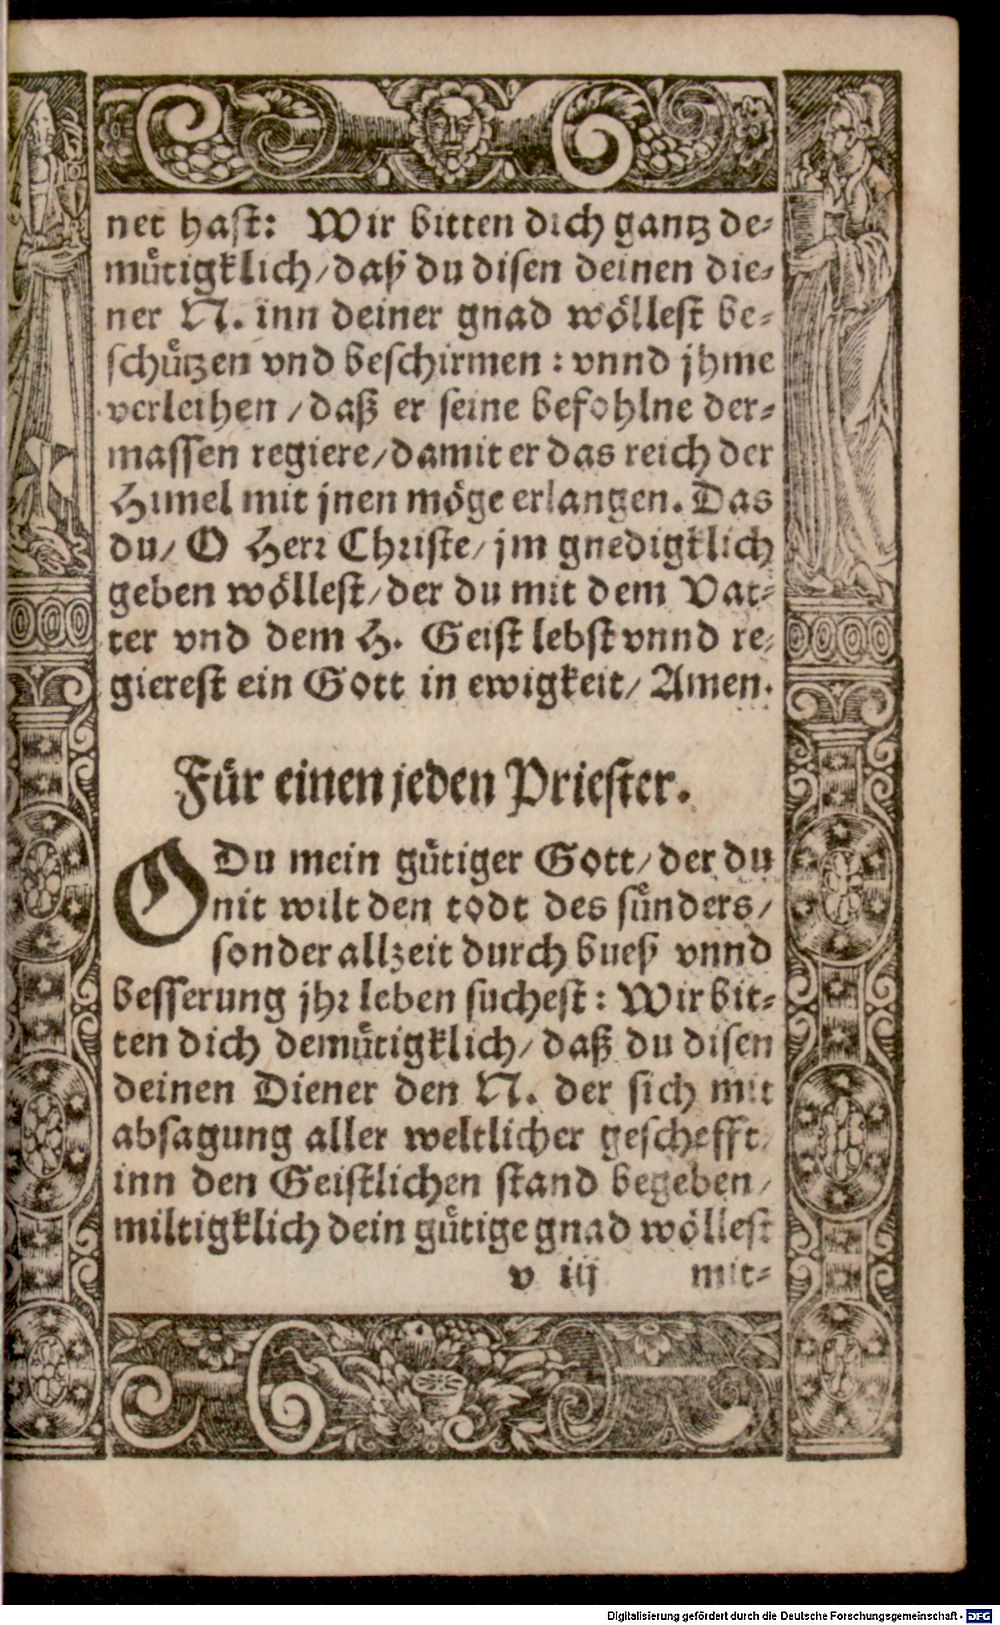 net hast: Wir bitten dich gantz de-
mütigklich/daß du disen deinen die-
ner N. inn deiner gnad wöllest be-
schützen vnd beschirmen : vnnd jhme
verleihen /daß er seine befohlne der-
massen regiere/damit er das reich der
Himel mit jnen möge erlangen. Das
du/ O Herr Christe/ jm gnedigklich
geben wöllest/der du mit dem Vat-
ter vnd dem H. Geist lebst vnnd re-
gierest ein Gott in ewigkeit/ Amen.
Für einen jeden Priester.
O Du mein gütiger Gott/der du
nit wilt den todt des sünders/
sonder allzeit durch bueß vnnd
besserung jhr leben suchest : Wir bit-
ten dich demütigklich/daß du disen
deinen Diener den N. der sich mit
absagung aller weltlicher geschefft/
inn den Geistlichen stand begeben/
miltigklich dein gütige gnad wöllest
v iij mit-
Digitalisierung gefördert durch die Deutsche Forschungsgemeinschaft - DFG